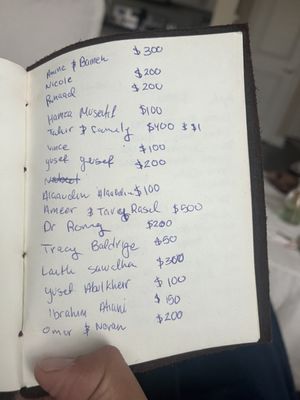 Amine & Baneen $300
Nicole $200
Runaad $200
Hamza Museitif $100
Tahir & Samely $400 $ $1
Vince $100
Yusef Yousef $200
Alaaudin Alaaudin $100
Ameer & Tareq Rasul $500
Dr Romy $200
Tracy Baldrige $50
Laith Sawalha $300
Yusef Abulkheir $100
Ibrahim Atiani $150
Omar & Noran $200